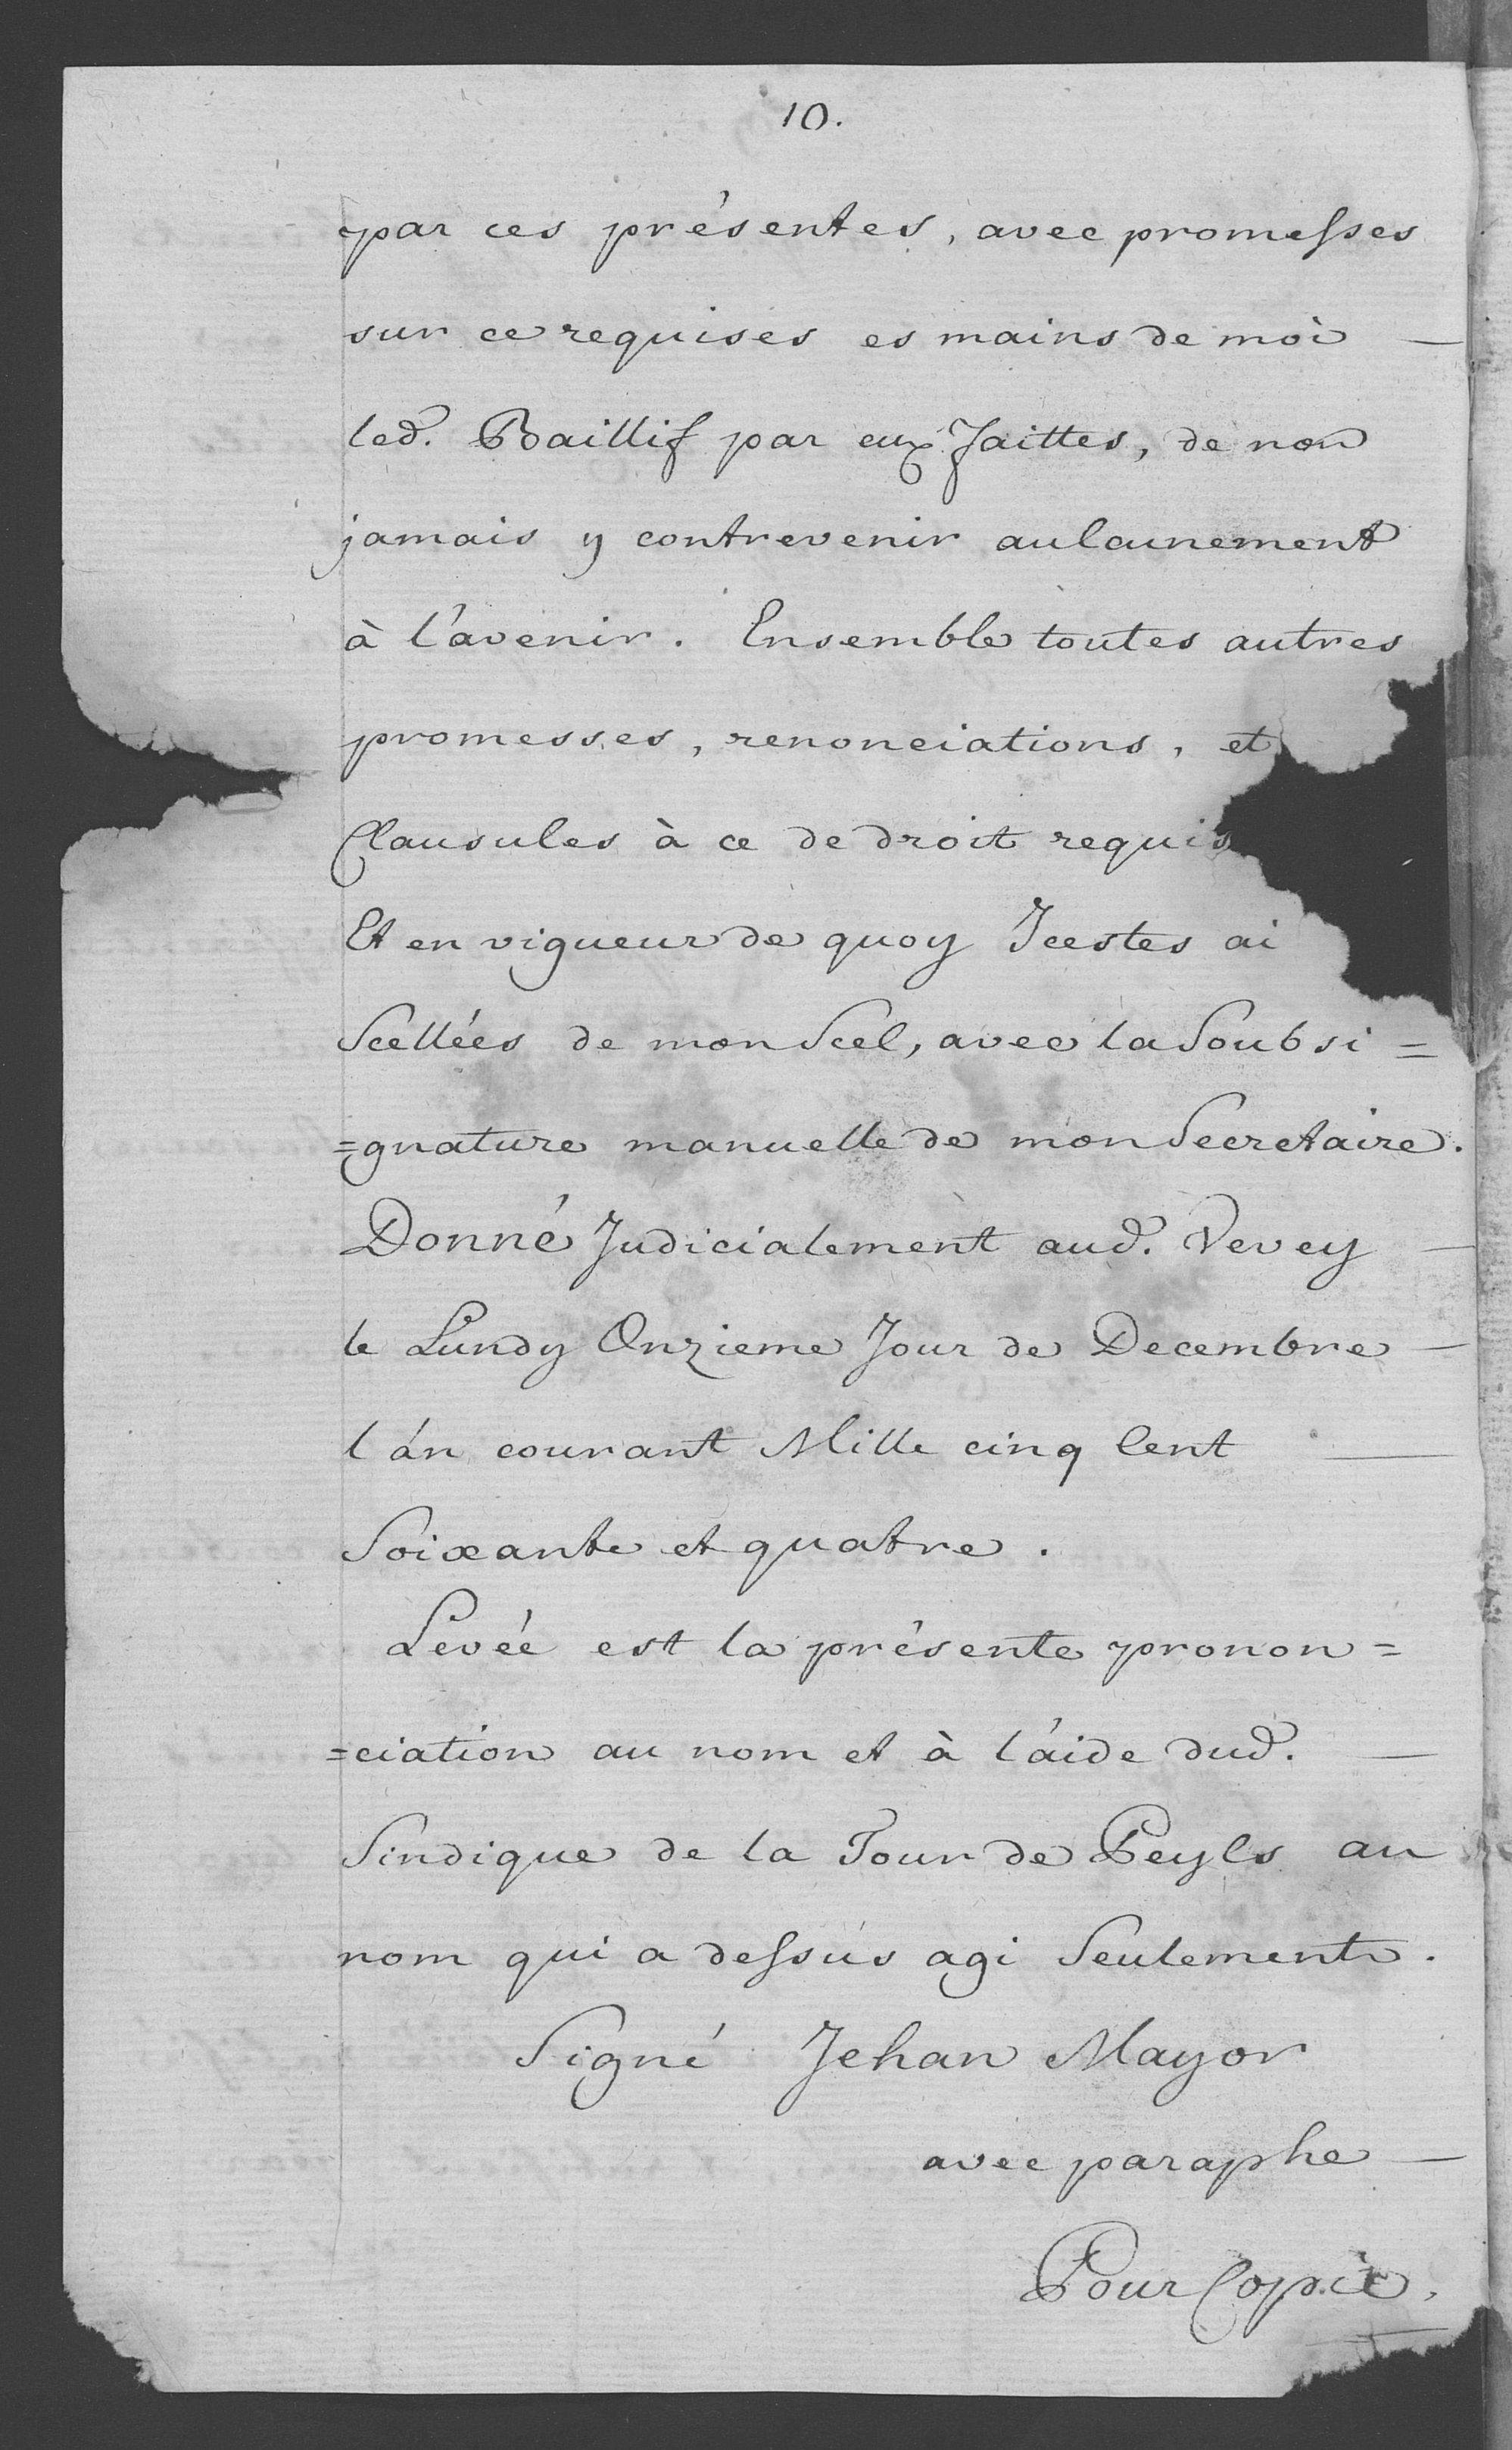 10.
par ces présentes, avec promesses
sur ce requises es mains de moi —
led. Baillif par eux faittes, de non
jamais y contrevenir aulcunement
à l'avenir. Ensemble toutes autres
promesses, renonciations, et
Clausules à ce de droit requis
Et en vigueur de quoy Jcestes ai
Scellées de mon Scel, avec la Soubsi=
=gnature manuelle de mon Secretaire.
Donné Judicialement aud. Vevey —
le Lundy Onzieme Jour de Decembre —
l'an courant Mille cinq Cent —
Soixante et quatre.
Levée est la présente pronon=
=ciation au nom et à l'aide dud. —
Sindique de la Tour de Peyls au
nom qui a dessus agi Seulement.
Signé Jehan Mayor
avec paraphe —
Pour Copie.